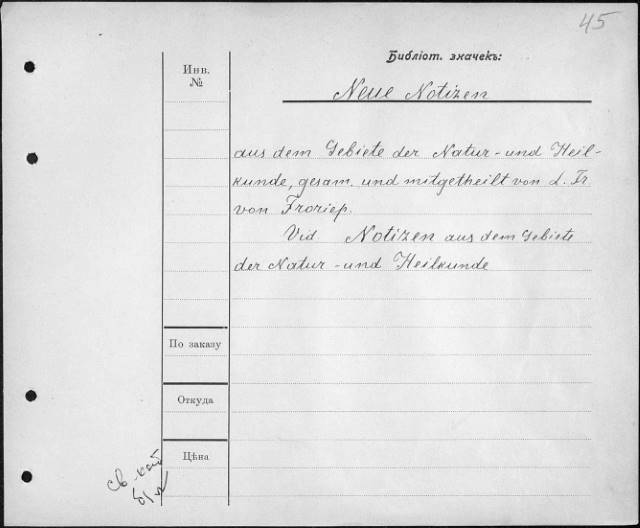 45
Библiот. значекъ:
Инв.
№
Neue Notizen
aus dem Gebiete der Natur- und Heil-
kunde, gesam. und mitgetheilt von L. Fr.
von Froriep.
Vid Notizen aus dem Gebiete
der Natur- und Heilkunde
По заказу
Откуда
Цѣна
св. кат